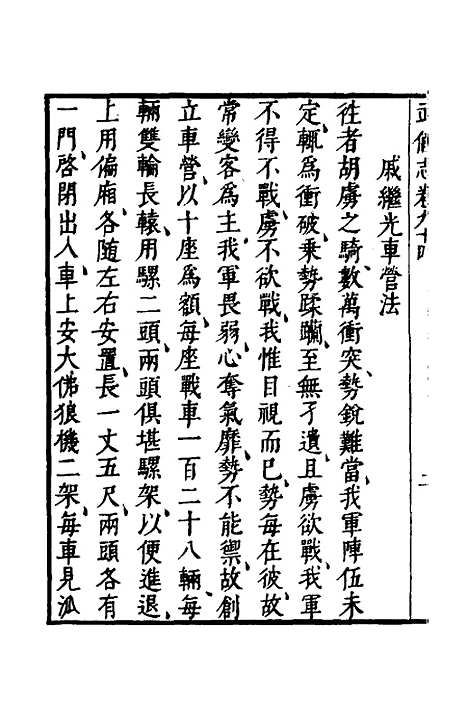 武備志卷九十四
二
戚繼光車營法
徃者胡虜之騎數萬衝突勢銳難當我軍陣伍未
定輒爲衝破乘勢蹂躪至無孑遺且虜欲戰我軍
不得不戰虜不欲戰我惟目視而已勢每在彼故
常變客爲主我軍畏弱心奪氣靡勢不能禦故創
立車營以十座爲額每座戰車一百二十八輛每
輛雙輪長轅用騾二頭兩頭俱堪騾架以便進退
上用偏廂各隨左右安置長一丈五尺兩頭各有
一門啓閉出入車上安大佛狼機二架每車見派